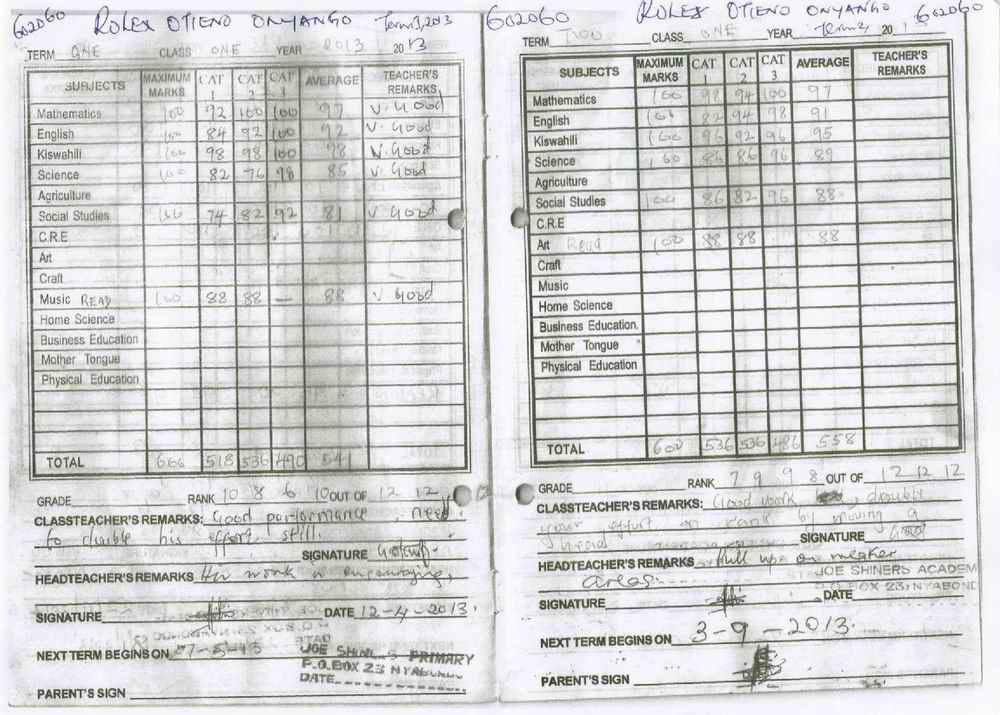 602060 ROLEX OTIENO ONYANGO Term 1, 2013
TERM ONE CLASS ONE YEAR 2013 2013
SUBJECTS MAXIMUM MARKS CAT 1 CAT 2 CAT 3 AVERAGE TEACHER'S REMARKS
Mathematics 100 92 100 100 97 V. Good
English 100 84 92 100 92 V. Good
Kiswahili 100 98 98 100 98 V. Good
Science 100 82 76 98 85 V. Good
Agriculture
Social Studies 100 74 82 92 81 V Good
C.R.E
Art
Craft
Music READ 100 88 88 — 88 V Good
Home Science
Business Education
Mother Tongue
Physical Education
TOTAL 600 518 536 490 541
GRADE RANK 10 8 6 10 OUT OF 12 12 12
CLASSTEACHER'S REMARKS: Good performance, need
to double his effort still.
SIGNATURE
HEADTEACHER'S REMARKS His work is encouraging,
SIGNATURE DATE 12-4-2013.
NEXT TERM BEGINS ON 7-5-13
JOE PRIMARY
P.O.BOX 23
DATE
PARENT'S SIGN
602060 ROLEX OTIENO ONYANGO 602060
TERM TWO CLASS ONE YEAR Term 2, 20
SUBJECTS MAXIMUM MARKS CAT 1 CAT 2 CAT 3 AVERAGE TEACHER'S REMARKS
Mathematics 100 98 94 100 97
English 100 82 94 98 91
Kiswahili 100 96 92 96 95
Science 100 86 86 96 89
Agriculture
Social Studies 100 86 82 96 88
C.R.E
Art Read 100 88 88 88
Craft
Music
Home Science
Business Education
Mother Tongue
Physical Education
TOTAL 600 536 536 486 558
GRADE RANK 7 9 9 8 OUT OF 12 12 12
CLASSTEACHER'S REMARKS: Good work, double
your effort on rank by moving a
head
SIGNATURE
HEADTEACHER'S REMARKS Pull up on weaker
areas.
JOE SHINERS ACADEM
P.O BOX 23, NYABOND
SIGNATURE DATE
NEXT TERM BEGINS ON 3-9-2013.
PARENT'S SIGN